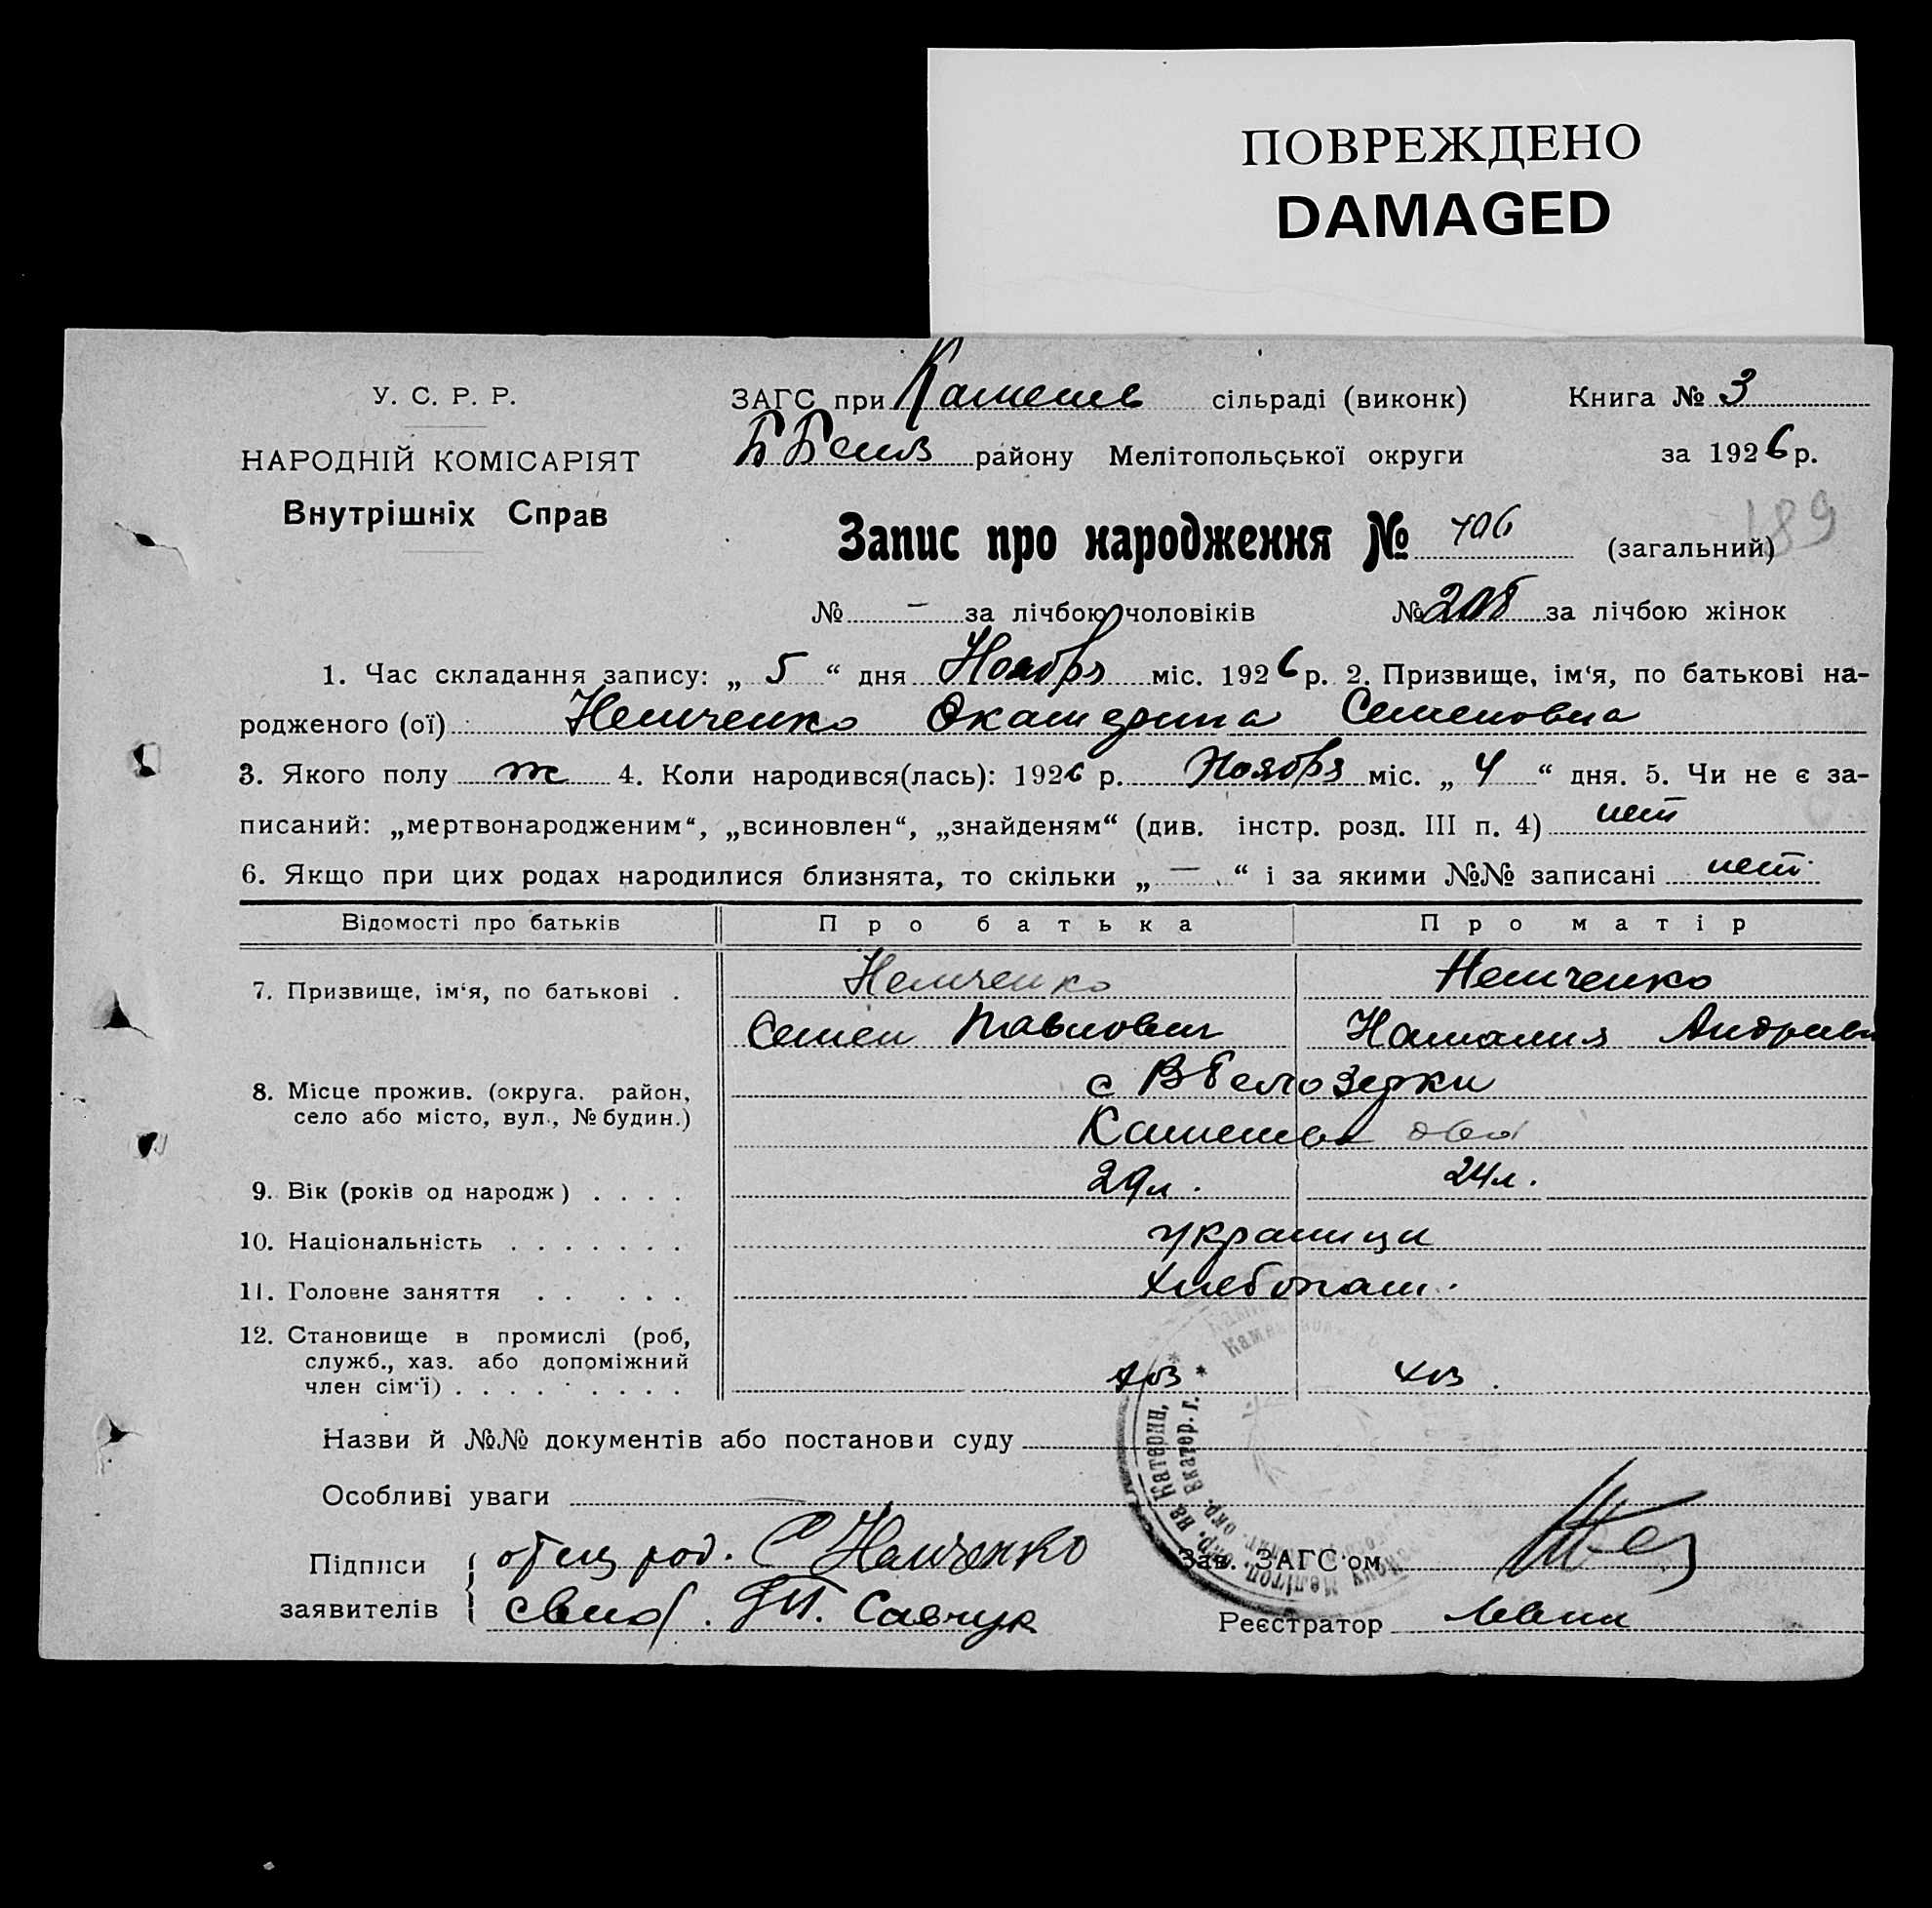 ПОВРЕЖДЕНО
DAMAGED
У. С. Р. Р.
НАРОДНІЙ КОМІСАРІЯТ
Внутрішніх Справ
ЗАГС при Каменск сільраді (виконк) Книга № 3
району Мелітопольської округи за 1926 р.
189
Запис про народження № 406 (загальний)
№ — за лічбою чоловіків № 208 за лічбою жінок
1. Час складання запису: „ 5 “ дня Ноября міс. 1926 р. 2. Призвище, ім‘я, по батькові на-
родженого (ої) Немченко Екатерина Семеновна
3. Якого полу ж 4. Коли народився(лась): 1926 р. Ноября міс. „ 4 “ дня. 5. Чи не є за-
писаний: „мертвонародженим“, „всиновлен“, „знайденям“ (див. інстр. розд. III п. 4) нет
6. Якщо при цих родах народилися близнята, то скільки „ — “ і за якими №№ записані нет
Відомості про батьків Про батька Про матір
7. Призвище, ім‘я, по батькові . Немченко Немченко
Семен Павлович Наталия Андриев
8. Місце прожив. (округа, район,
село або місто, вул., № будин.)
с В Белозерки
9. Вік (років од народж) . . . . 29 л. 24 л.
10. Національність . . . . . . . украинци
11. Головне заняття . . . . . . хлебопаш.
12. Становище в промислі (роб,
служб., хаз. або допоміжний
член сім‘ї) . . . . . . . . . хоз хоз.
Назви й №№ документів або постанови суду
Особливі уваги
Підписи
заявителів
отец род. С Немченко
Савчук
Зав. ЗАГС‘ом
Реєстратор